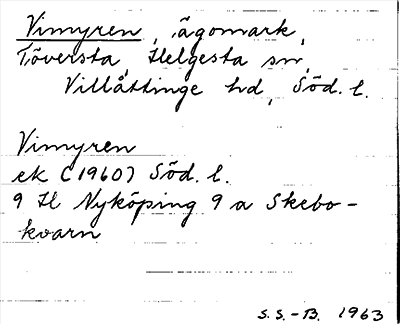 Vimyren, ägomark,
Töversta, Helgesta sn,
Villåttinge hd, Söd. l.
Vimyren
ek (1960) Söd. l.
9 H Nyköping 9 a Skebo-
kvarn
S.S.-B. 1963